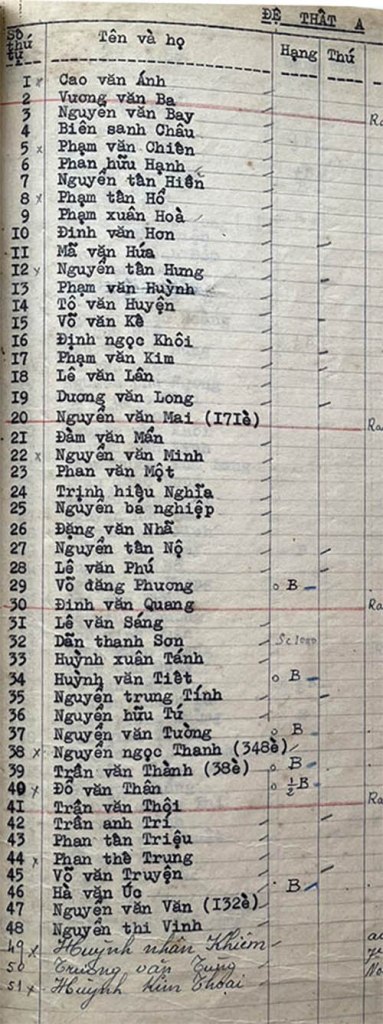 ĐỆ THẤT A
Số thứ tự Tên và họ Hạng Thú
1 x Cao văn Ánh
2 Vương văn Ba
3 Nguyễn văn Bay
4 Biên sanh Châu
5 x Phạm văn Chiên
6 Phan hữu Hạnh
7 Nguyễn tân Hiến
8 x Phạm tân Hổ
9 Phạm xuân Hoà
10 Đinh văn Hơn
11 Mã văn Hứa
12 x Nguyễn tân Hưng
13 Phạm văn Huỳnh
14 Tô văn Huyện
15 Võ văn Kê
16 Định ngọc Khôi
17 Phạm văn Kim
18 Lê văn Lân
19 Dương văn Long
20 Nguyễn văn Mai (171è) Ra
21 Đàm văn Mẩn
22 x Nguyễn văn Minh
23 Phan văn Một
24 Trịnh hiệu Nghĩa
25 Nguyễn bá nghiệp
26 Đặng văn Nhã
27 Nguyễn tân Nộ
28 Lê văn Phú
29 Võ đăng Phương B
30 Đinh văn Quang Ra
31 Lê văn Sáng
32 Dẫn thanh Sơn
33 Huỳnh xuân Tánh
34 Huỳnh văn Tiêt B
35 Nguyễn trung Tính
36 Nguyễn hữu Tú
37 Nguyễn văn Tường B
38 x Nguyễn ngọc Thanh (348è)
39 Trần văn Thành (38è) B
40 x Đỗ văn Thân ½B
41 Trần văn Thội Ra
42 Trần anh Trí
43 Phan tân Triệu
44 x Phan thê Trung
45 Võ văn Truyện
46 Hà văn Úc B
47 Nguyễn văn Văn (132è)
48 Nguyễn thi Vinh
49 x Huỳnh nhân Khiêm
50 Trương văn Tùng
51 x Huỳnh kim Thoại